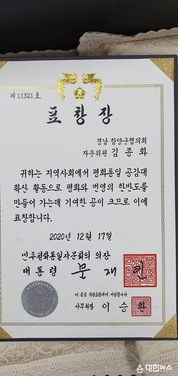 제 11321 호
표 창 장
경남 함양군협의회
자문위원 김 종 화
귀하는 지역사회에서 평화통일 공감대
확산 활동으로 평화와 번영의 한반도를
만들어 가는데 기여한 공이 크므로 이에
표창합니다.
2020년 12월 17일
민주평화통일자문회의 의장
대통령 문 재 인
이 증을 작성하여
사무처장 이 승 환
대한뉴스